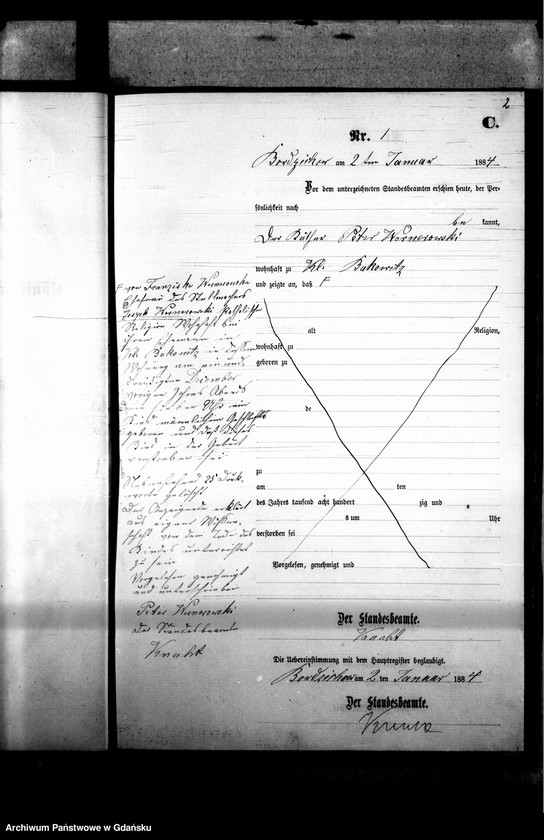 2
C.
Nr. 1
Bordzichow am 2 ten Januar 1884
Vor dem unterzeichneten Standesbeamten erschien heute, der Per-
sönlichkeit nach
be kannt,
Der Käthner Peter Wernerowski
wohnhaft zu Kl. Bukowitz
und zeigte an, daß F
F von Franziska
Ehefrau des Stellmachers
Joseph katholischer
Religion wohnhaft bei
ihrem Ehemanne in
Kl. Bukowitz in dessen
Wohnung am ein und
dreißigsten December
vorigen Jahres Abends
Uhr ein
Kind männlichen Geschlechts
geboren und daß dieses
Kind in der Geburt
verstorben sei
Vorstehend 25 Druck-
worte gelöscht
Der Anzeigende erklärt
aus eigener Wissen-
schaft von dem Tode des
Kindes unterrichtet
zu sein
Vorgelesen genehmigt
und unterschrieben
Peter
Der Standesbeamte
alt Religion,
wohnhaft zu
geboren zu
de
zu
am ten
des Jahres tausend acht hundert zig und
s um Uhr
verstorben sei
Vorgelesen, genehmigt und
Der Standesbeamte.
Die Uebereinstimmung mit dem Hauptregister beglaubigt.
Bordzichow am 2 ten Januar 1884
Der Standesbeamte.
Archiwum Państwowe w Gdańsku